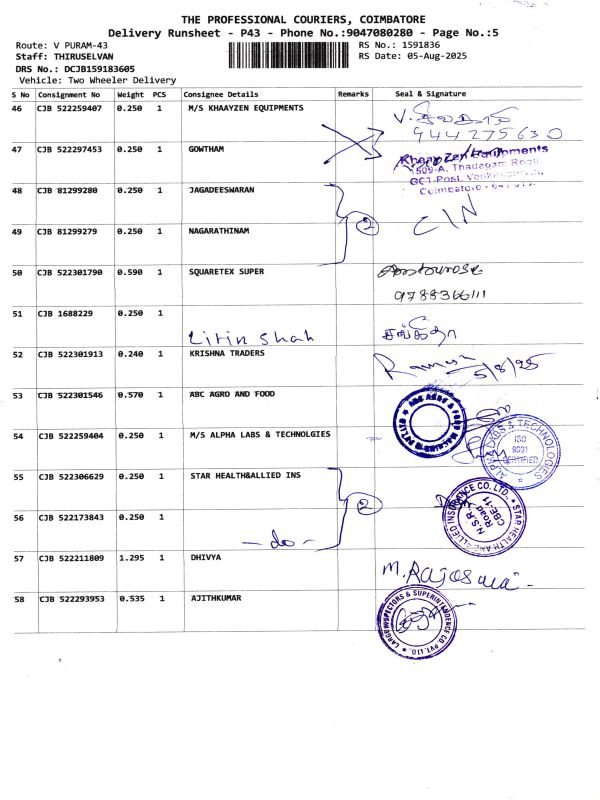 THE PROFESSIONAL COURIERS, COIMBATORE
Delivery Runsheet - P43 - Phone No.:9047080280 - Page No.:5
Route: V PURAM-43 RS No.: 1591836
Staff: THIRUSELVAN RS Date: 05-Aug-2025
DRS No.: DCJB159183605
Vehicle: Two Wheeler Delivery
S No Consignment No Weight PCS Consignee Details Remarks Seal & Signature
46 CJB 522259407 0.250 1 M/S KHAAYZEN EQUIPMENTS
9442775630
47 CJB 522297453 0.250 1 GOWTHAM
Khaay Zen Equipments
1509-A, Thadagam Road
GCT-Post,
Coimbatore
48 CJB 81299280 0.250 1 JAGADEESWARAN
2 C/N
49 CJB 81299279 0.250 1 NAGARATHINAM
50 CJB 522301790 0.590 1 SQUARETEX SUPER
9788366111
51 CJB 1688229 0.250 1
Litin Shah சங்கீதா
52 CJB 522301913 0.240 1 KRISHNA TRADERS Ramesh 5/8/25
53 CJB 522301546 0.570 1 ABC AGRO AND FOOD
ABC AGRO & FOOD
54 CJB 522259404 0.250 1 M/S ALPHA LABS & TECHNOLGIES
ALPHA LABS & TECHNOLOGIES
ISO
9001
CERTIFIED
55 CJB 522306629 0.250 1 STAR HEALTH&ALLIED INS
2
STAR HEALTH AND ALLIED INSURANCE CO. LTD.
N.S.R.
Road
CBE-11
56 CJB 522173843 0.250 1
- do -
57 CJB 522211809 1.295 1 DHIVYA
58 CJB 522293953 0.535 1 AJITHKUMAR
INSPECTORS & SUPERINTENDENCE CO PVT. LTD.